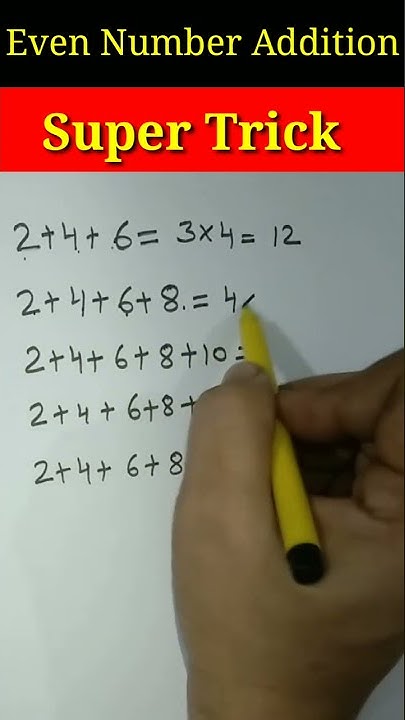 Even Number Addition
Super Trick
2+4+ 6= 3×4= 12
2+4+6+8.= 4
2+4+6+8+10=
2+4+6+8+
2+4+ 6+8